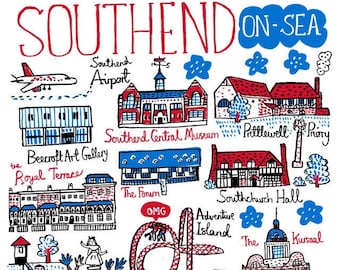 SOUTHEND
ON-SEA
Southend
Airport
Southend Central Museum
Prittlewell Priory
Beecroft Art Gallery
The Royal Terrace
The Forum
Southchurch Hall
OMG
Adventure
Island
The Kursaal